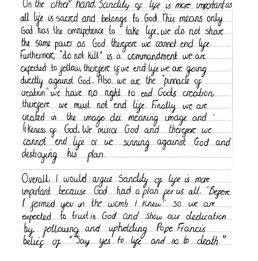 On the other hand, Sanctity of life is more important as
all life is sacred and belongs to God. This means only
God has the omnipotence to take life, we do not share
the same power as God therefore we cannot end life.
Furthermore, "do not kill" is a commandment we are
expected to follow therefore if we end life we are going
directly against God. Also we are the "pinnacle of
creation" we have no right to end Gods creation
therefore we must not end life. Finally we are
created in the imago dei meaning image and
likeness of God. We mirror God and therefore we
cannot end life or we sinning against God and
destroying his plan.
Overall, I would argue Sanctity of life is more
important because God had a plan for us all. "Before
I formed you in the womb I knew" so we are
expected to trust in God and show our dedication
by following and upholding Pope Francis
belief of "Say yes to life and no to death."